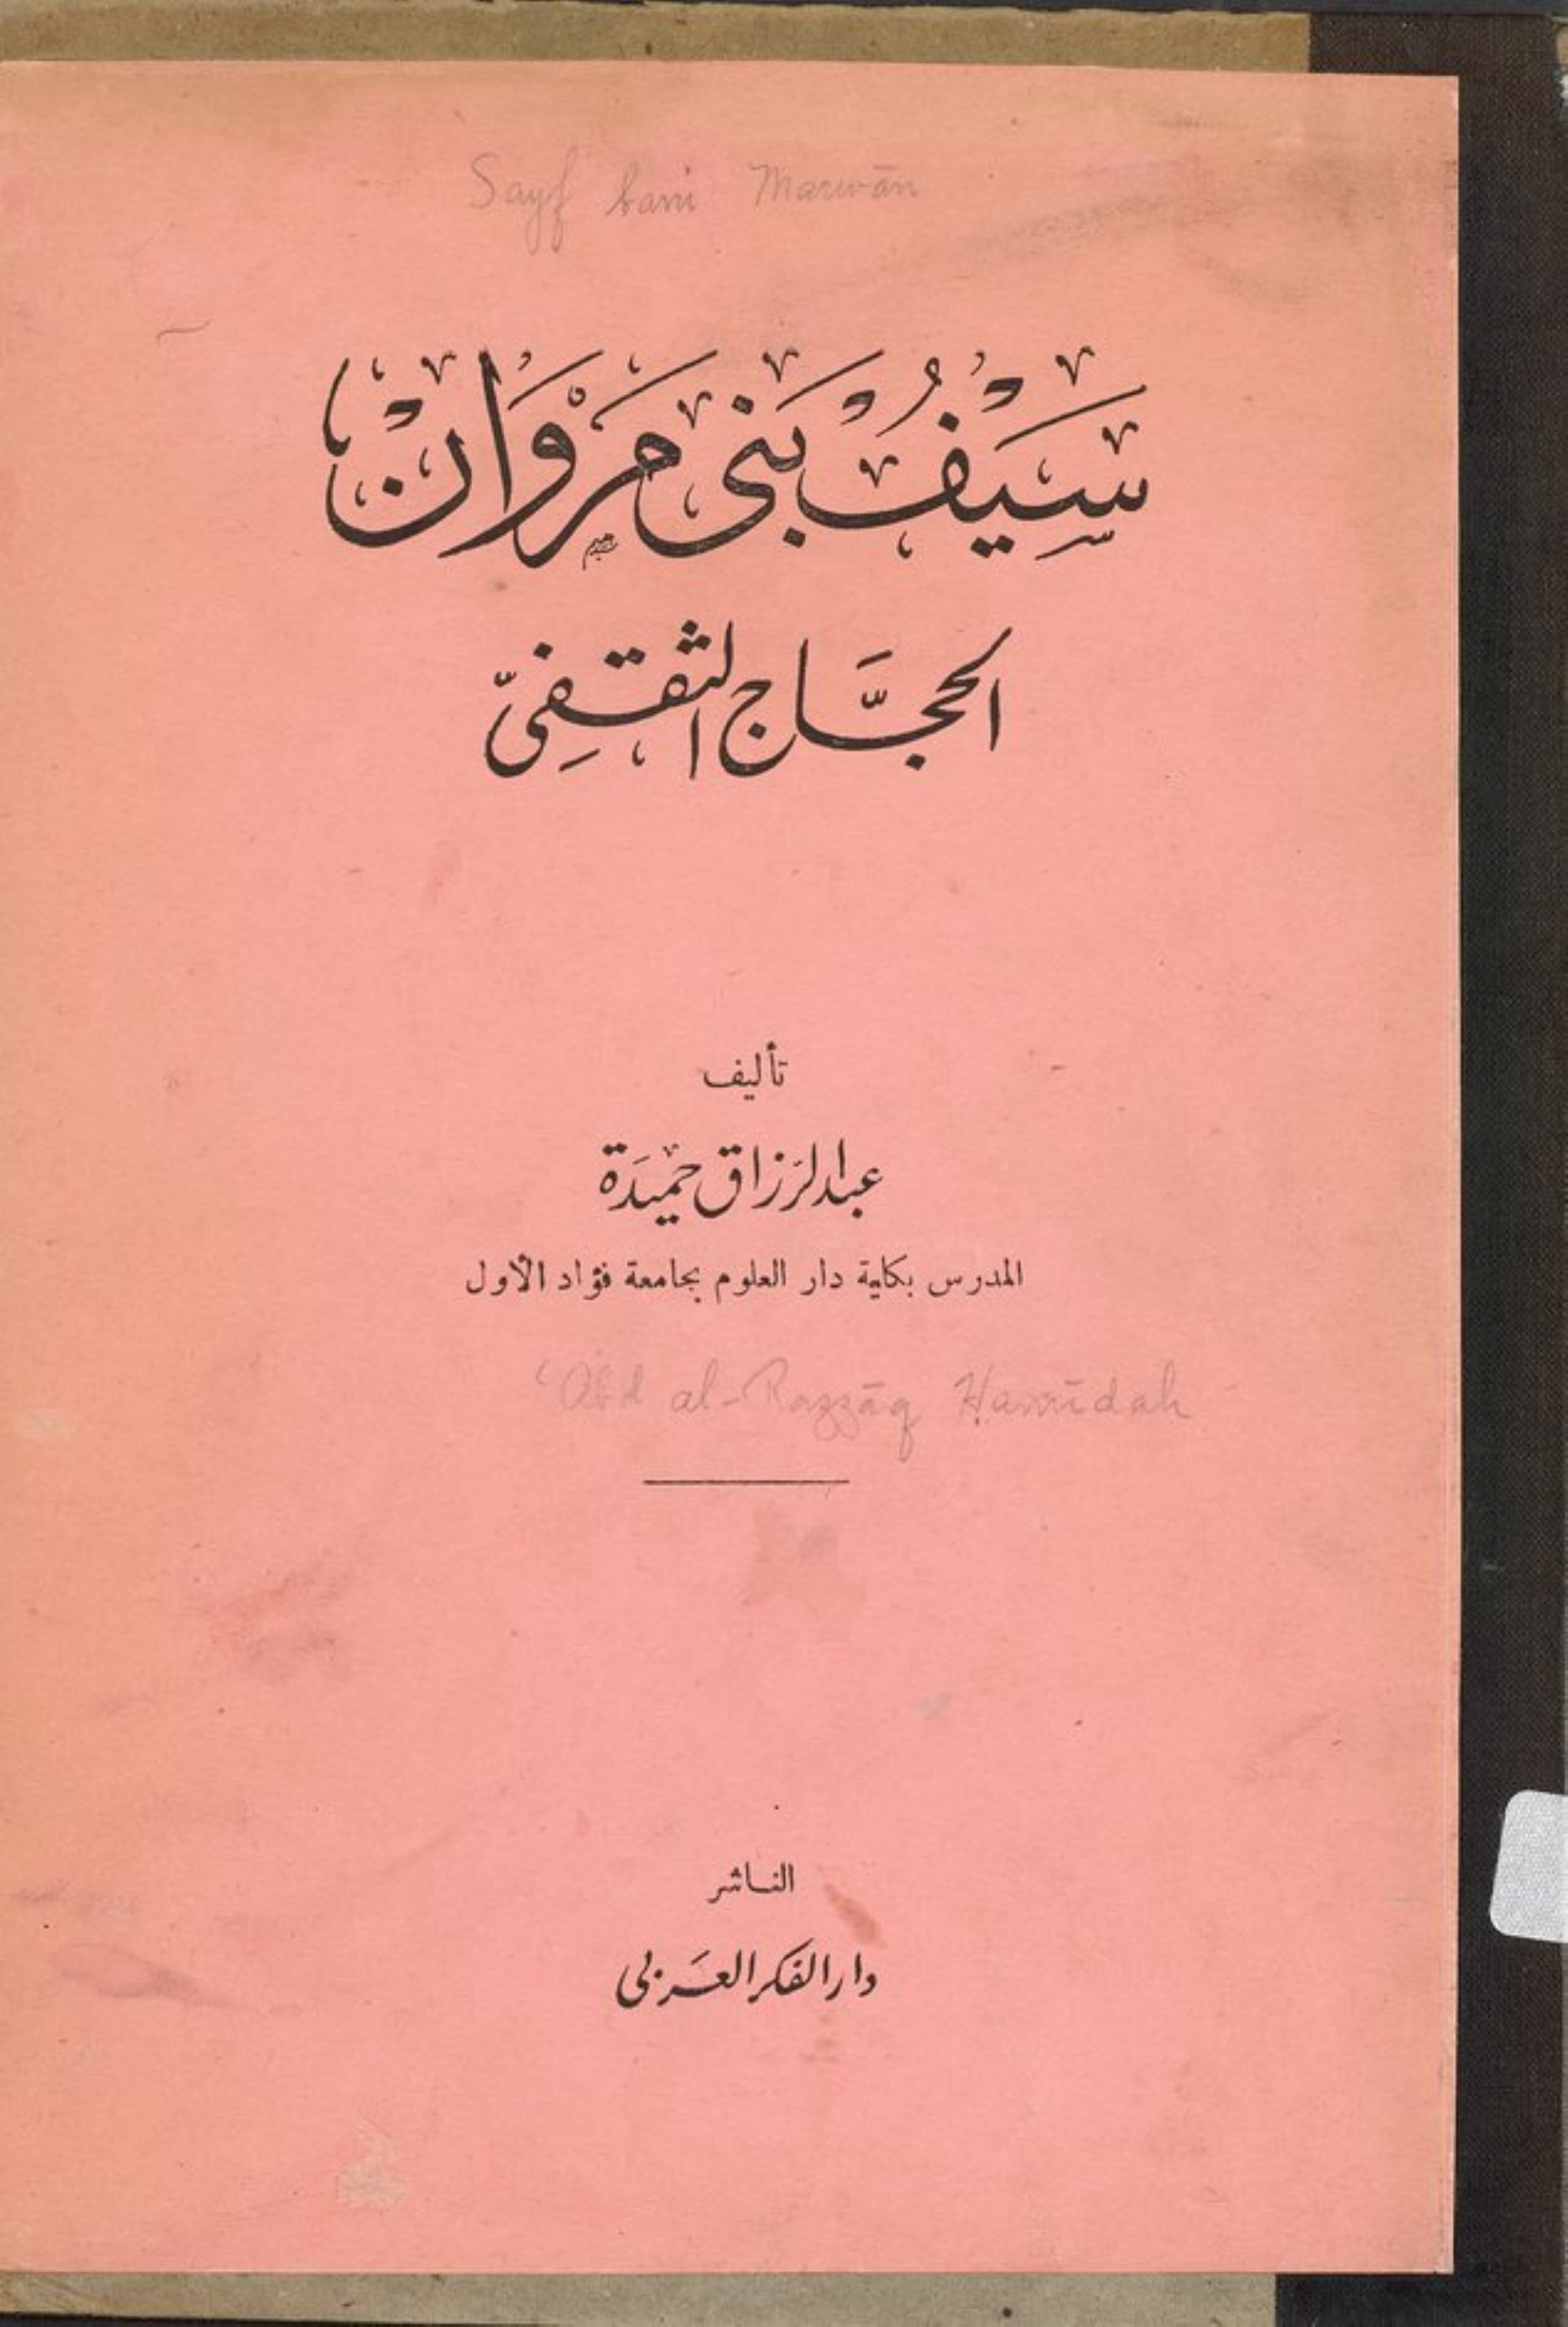 Sayf bani Marwān
سَيْفُ بَنى مَرْوَانْ
الحجَّاج الثقفِىّ
تأليف
عبد الرَزاق حميَدَة
المدرس بكلية دار العلوم بجامعة فؤاد الأول
ʻAbd al-Razzāq Ḥamīdah
الناشر
دار الفكر العَربى